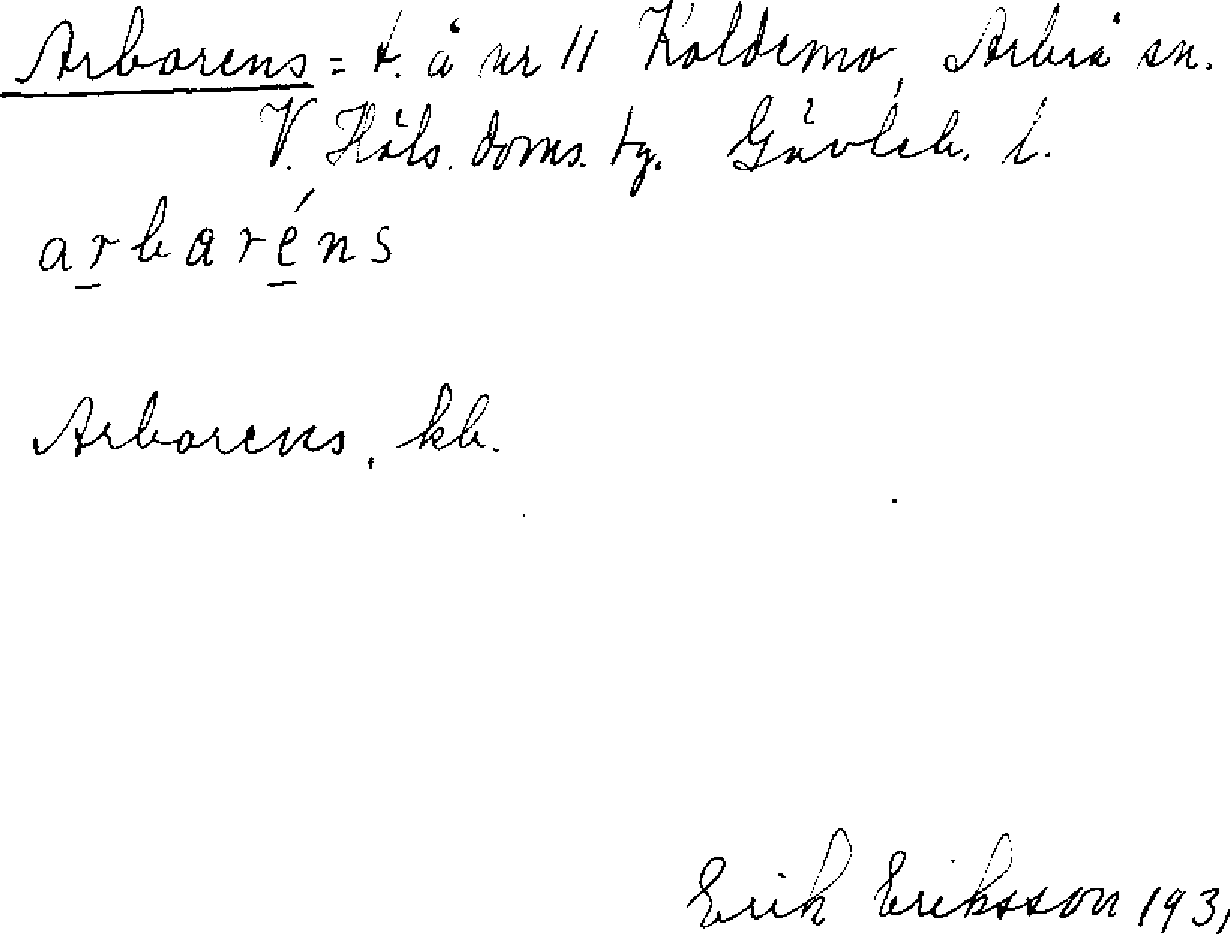 Arborens = t. å nr 11 Koldemo, Arbrå sn.
V. Häls. doms. tg. Gävleb. l.
arbaréns
Arborens, kb.
Erik Eriksson 193